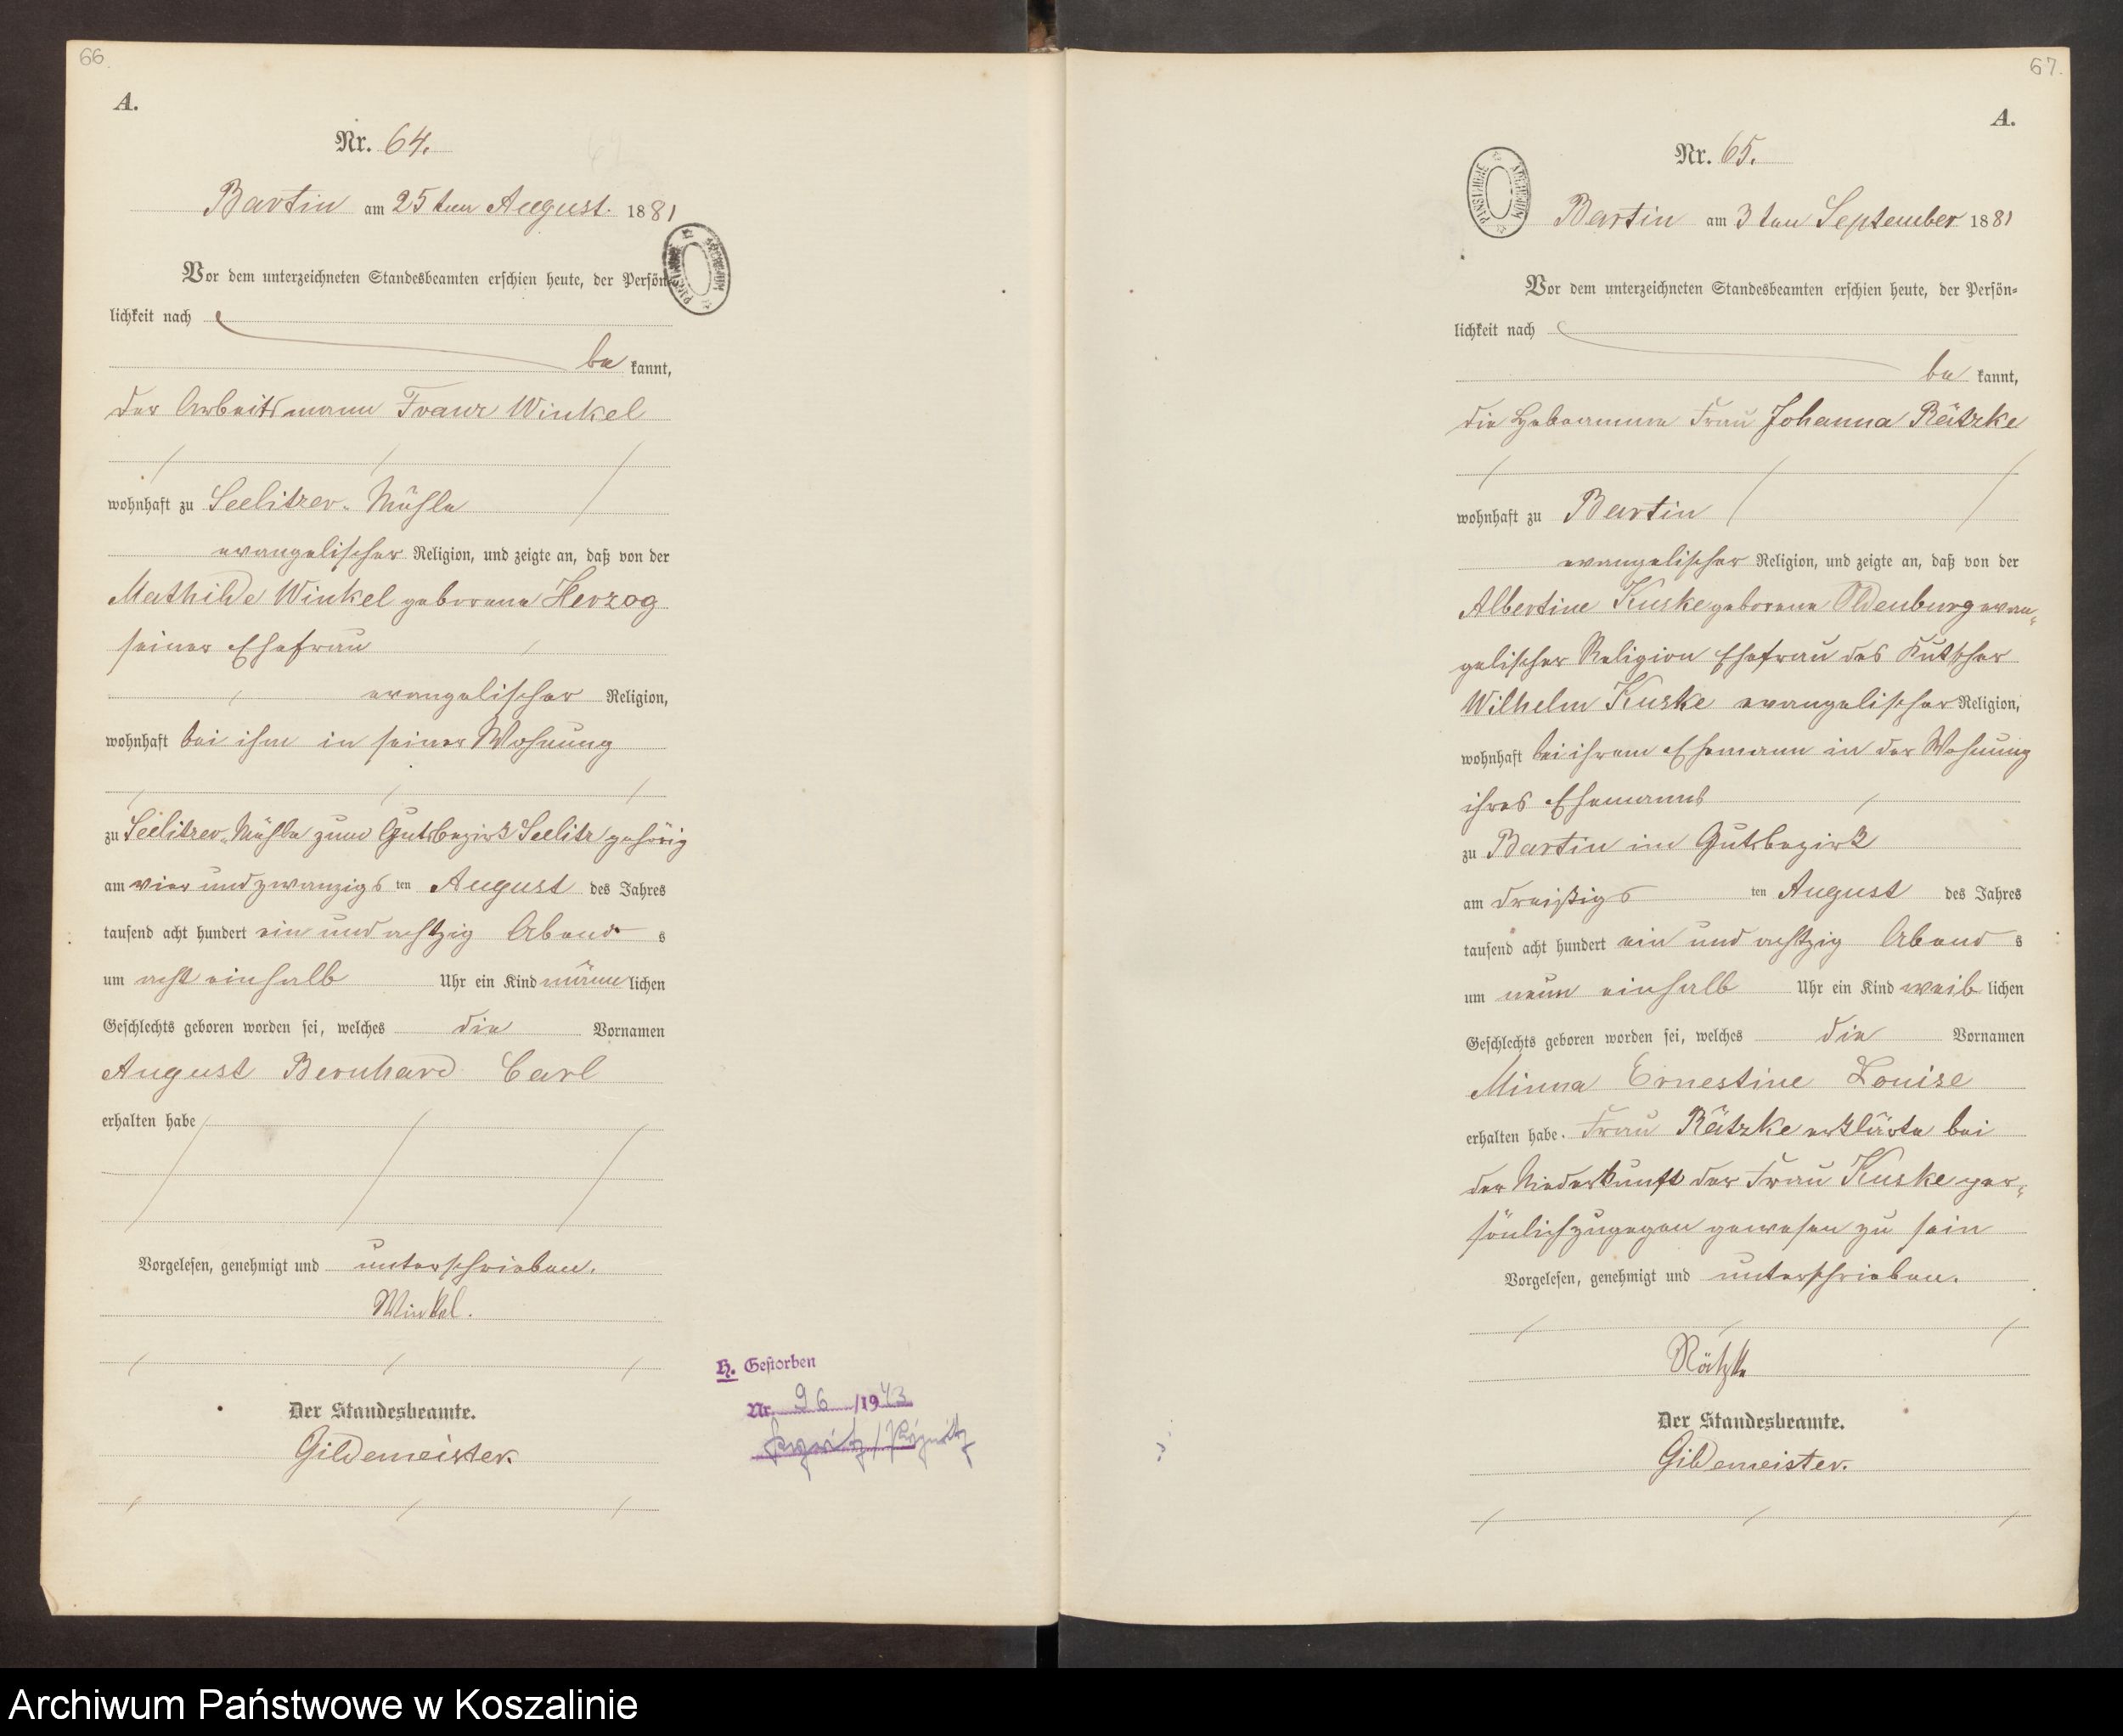 66.
A.
Nr. 64.
Bartin am 25ten August. 1881
Vor dem unterzeichneten Standesbeamten erschien heute, der Persön-
lichkeit nach
be kannt,
der Arbeitsmann Franz Winkel
wohnhaft zu Seelitzer-Mühle
evangelischer Religion, und zeigte an, daß von der
Mathilde Winkel geborene Herzog
seiner Ehefrau
evangelischer Religion,
wohnhaft bei ihm in seiner Wohnung
zu Seelitzer-Mühle zum Gutsbezirk Seelitz gehörig
am vier und zwanzigs ten August des Jahres
tausend acht hundert ein und achtzig Abend s
um acht einhalb Uhr ein Kind männ lichen
Geschlechts geboren worden sei, welches die Vornamen
August Bernhard Carl
erhalten habe
Vorgelesen, genehmigt und unterschrieben.
Winkel.
Der Standesbeamte.
Gildemeister.
H. Gestorben
Nr. 96 /1943
67.
A.
Nr. 65.
Bartin am 3ten September 1881
Vor dem unterzeichneten Standesbeamten erschien heute, der Persön-
lichkeit nach
be kannt,
die Hebeamme Frau Johanna Rätzke
wohnhaft zu Bartin
evangelischer Religion, und zeigte an, daß von der
Albertine Kuske geborene Oldenburg evan-
gelischer Religion Ehefrau des Kutscher
Wilhelm Kuske evangelischer Religion,
wohnhaft bei ihrem Ehemann in der Wohnung
ihres Ehemanns
zu Bartin im Gutsbezirk
am dreißigs ten August des Jahres
tausend acht hundert ein und achtzig Abend s
um neun einhalb Uhr ein Kind weib lichen
Geschlechts geboren worden sei, welches die Vornamen
Minna Ernestine Louise
erhalten habe. Frau Rätzke erklärte bei
der Niederkunft der Frau Kuske per-
sönlich zugegen gewesen zu sein
Vorgelesen, genehmigt und unterschrieben.
Rätzke
Der Standesbeamte.
Gildemeister.
Archiwum Państwowe w Koszalinie